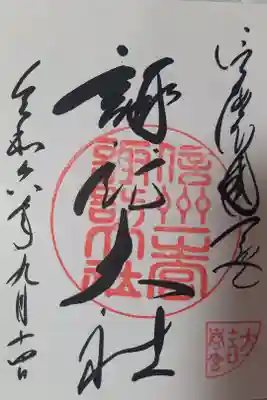 信濃國一宮
諏訪大社
令和六年九月十四日
信州一宮
諏訪大社